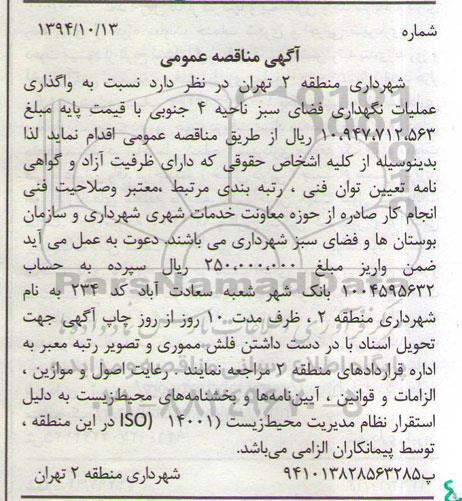 شماره ۱۳۹۴/۱۰/۱۳
آگهی مناقصه عمومی
شهرداری منطقه ۲ تهران در نظر دارد نسبت به واگذاری
عملیات نگهداری فضای سبز ناحیه ۴ جنوبی با قیمت پایه مبلغ
۱۰،۹۴۷،۷۱۲،۵۶۳ ریال از طریق مناقصه عمومی اقدام نماید لذا
بدینوسیله از کلیه اشخاص حقوقی که دارای ظرفیت آزاد و گواهی
نامه تعیین توان فنی ، رتبه بندی مرتبط ،معتبر وصلاحیت فنی
انجام کار صادره از حوزه معاونت خدمات شهری شهرداری و سازمان
بوستان ها و فضای سبز شهرداری می باشند. دعوت به عمل می آید
ضمن واریز مبلغ ۲۵۰،۰۰۰،۰۰۰ ریال سپرده به حساب
۱۰۰۴۵۹۵۶۳۲ بانک شهر شعبه سعادت آباد کد ۲۳۴ به نام
شهرداری منطقه ۲ ، ظرف مدت ۱۰ روز از روز چاپ آگهی جهت
تحویل اسناد با در دست داشتن فلش مموری و تصویر رتبه معبر به
اداره قراردادهای منطقه ۲ مراجعه نمایند. رعایت اصول و موازین ،
الزامات و قوانین ، آیین‌نامه‌ها و بخشنامه‌های محیط‌زیست به دلیل
استقرار نظام مدیریت محیط‌زیست (۱۴۰۰۱ ISO) در این منطقه ،
توسط پیمانکاران الزامی می‌باشد.
پ۹۴۱۰۱۳۸۲۸۵۶۳۲۸۵ شهرداری منطقه ۲ تهران